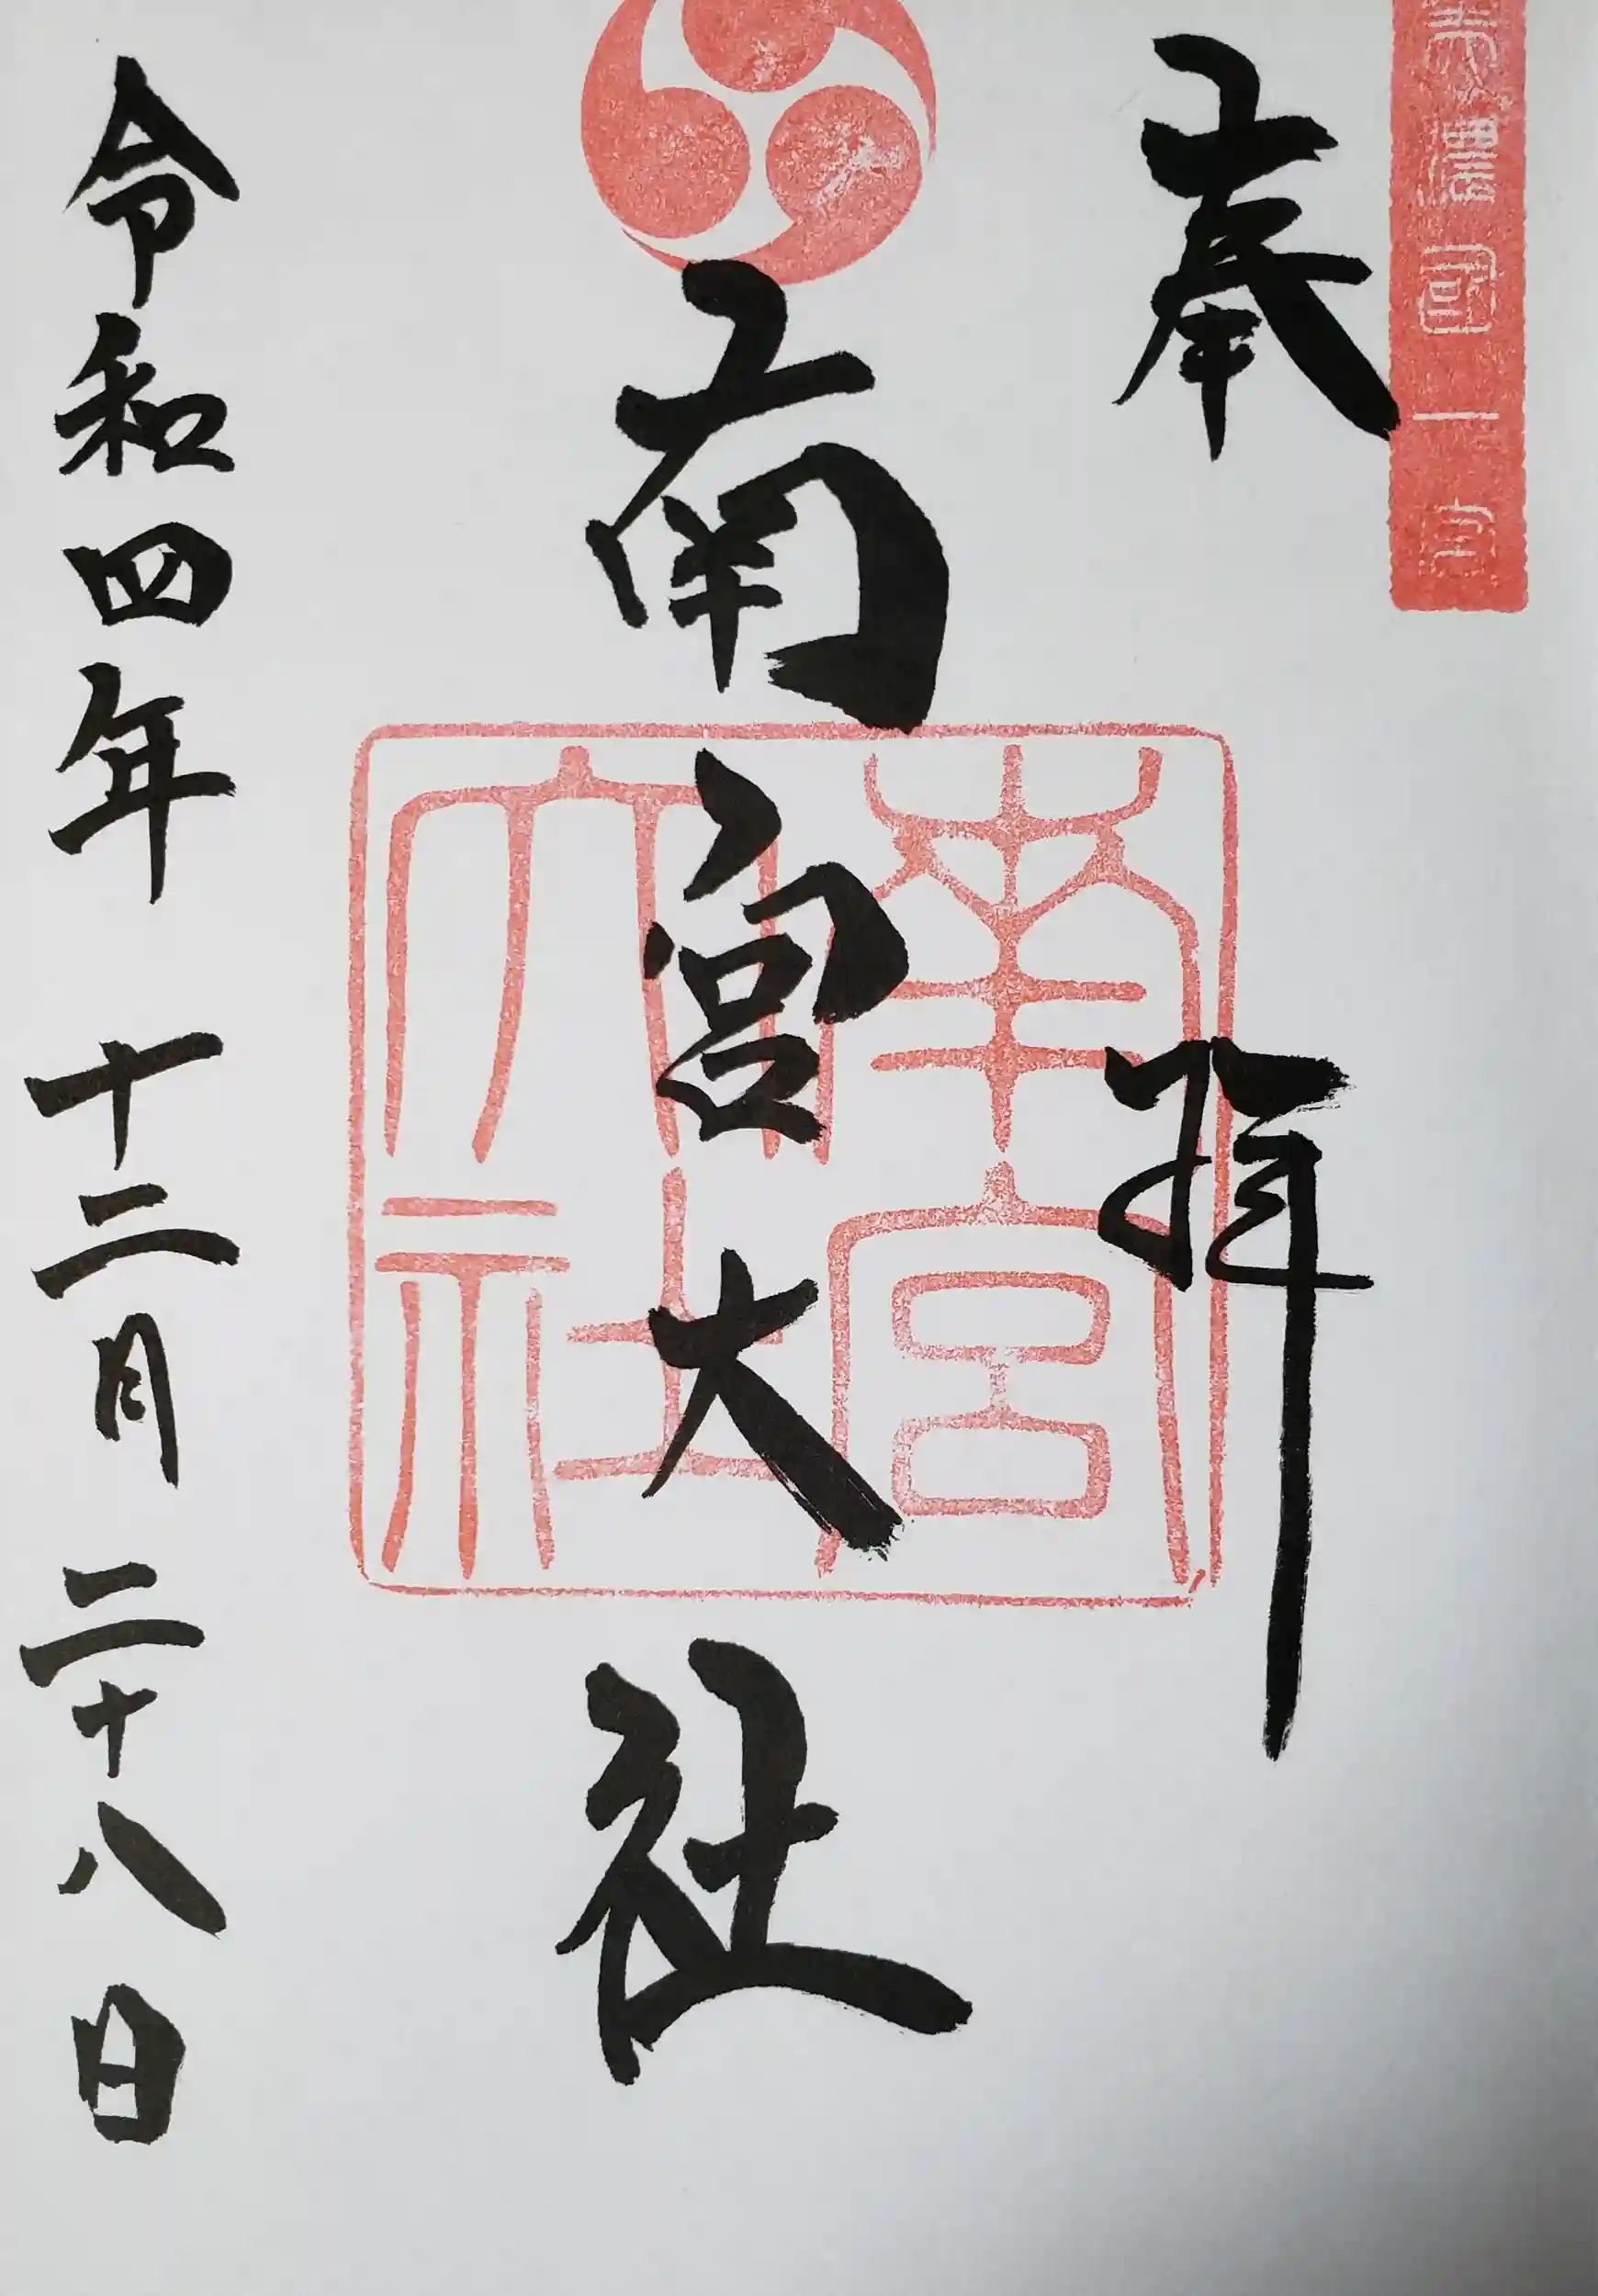 美濃國一宮
奉拝
南宮大社
南宮大社
令和四年 十二月 二十八日